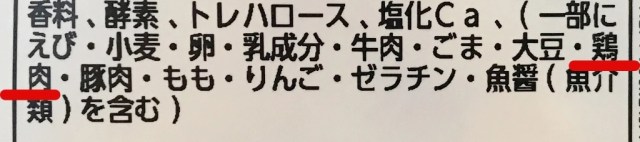 香料、酵素、トレハロース、塩化Ca、(一部に
えび・小麦・卵・乳成分・牛肉・ごま・大豆・鶏
肉・豚肉・もも・りんご・ゼラチン・魚醤(魚介
類)を含む)